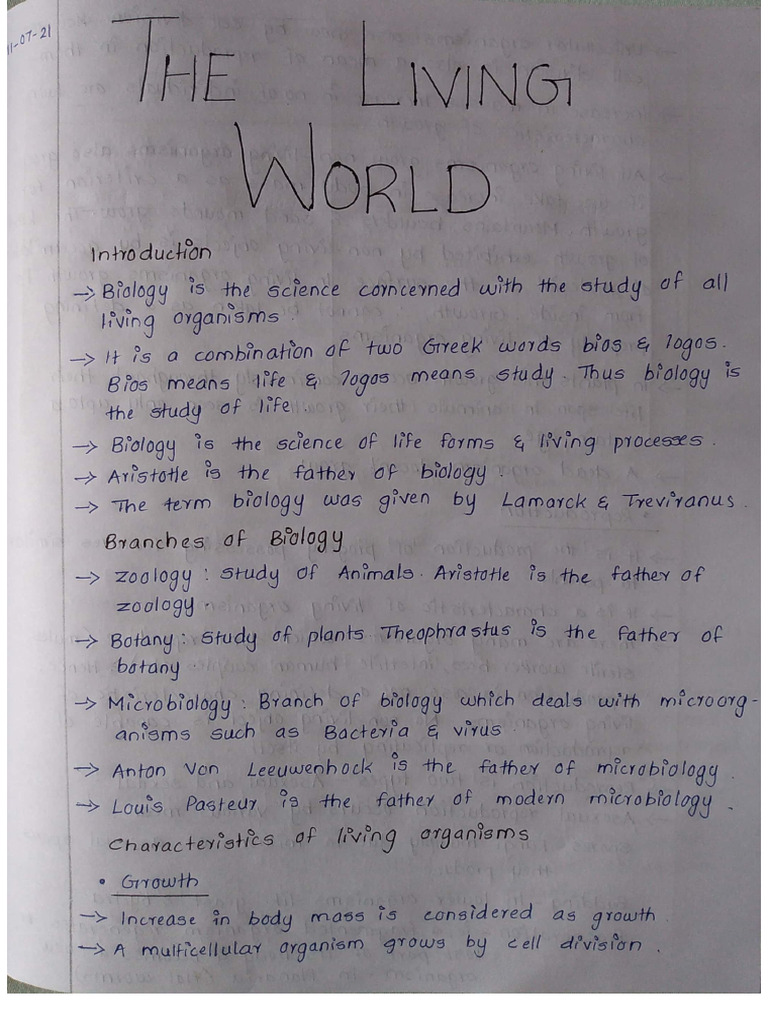 11-07-21
THE LIVING
WORLD
Introduction
→ Biology is the science corncerned with the study of all
living organisms.
→ It is a combination of two Greek words bios & logos.
Bios means life & logos means study. Thus biology is
the study of life.
→ Biology is the science of life forms & living processes.
→ Aristotle is the father of biology.
→ The term biology was given by Lamarck & Treviranus.
Branches of Biology
→ Zoology : Study of Animals. Aristotle is the father of
zoology.
→ Botany : Study of plants Theophrastus is the father of
botany
→ Microbiology : Branch of biology which deals with microorg-
anisms such as Bacteria & virus.
→ Anton Von Leeuwenhock is the father of microbiology.
→ Louis Pasteur is the father of modern microbiology.
Characteristics of living organisms
• Growth
→ Increase in body mass is considered as growth.
→ A multicellular organism grows by cell division.